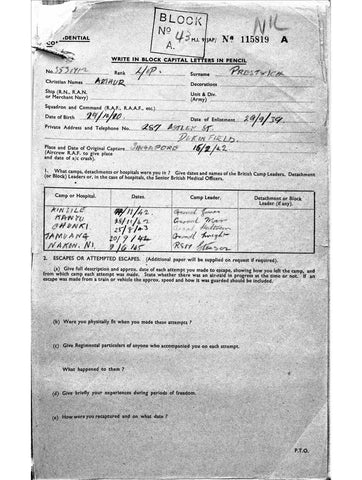 BLOCK
No 43
A.
NIL
CONFIDENTIAL
M.I. 9/JAP/ No 115819 A
WRITE IN BLOCK CAPITAL LETTERS IN PENCIL
No. Rank L/CP. Surname PRESTWICH
Christian Names ARTHUR Decorations
Ship (R.N., R.A.N. or Merchant Navy) Unit & Div. (Army)
Squadron and Command (R.A.F., R.A.A.F., etc.)
Date of Birth Date of Enlistment
Private Address and Telephone No. 287 ASTLEY ST.
DUKINFIELD.
Place and Date of Original Capture SINGAPORE 15/2/42
(Aircrew R.A.F. to give place
and date of a/c crash).
1. What camps, detachments or hospitals were you in? Give dates and names of the British Camp Leaders, Detachment
(or Block) Leaders or, in the case of hospitals, the Senior British Medical Officers.
Camp or Hospital. Dates. Camp Leader. Detachment or Block Leader (if any).
/11/42.
28/11/42
CHUNKI 25/8/43
TAMUANG 20/9/44
NAKIN. NI. 9/6/45 RSM
2. ESCAPES OR ATTEMPTED ESCAPES. (Additional paper will be supplied on request if required).
(a) Give full description and approx. date of each attempt you made to escape, showing how you left the camp, and
from which camp each attempt was made. State whether there was an air-raid in progress at the time or not. If an
escape was made from a train or vehicle the approx. speed and how it was guarded should be included.
(b) Were you physically fit when you made these attempts?
(c) Give Regimental particulars of anyone who accompanied you on each attempt.
What happened to them?
(d) Give briefly your experiences during periods of freedom.
(e) How were you recaptured and on what date?
P.T.O.